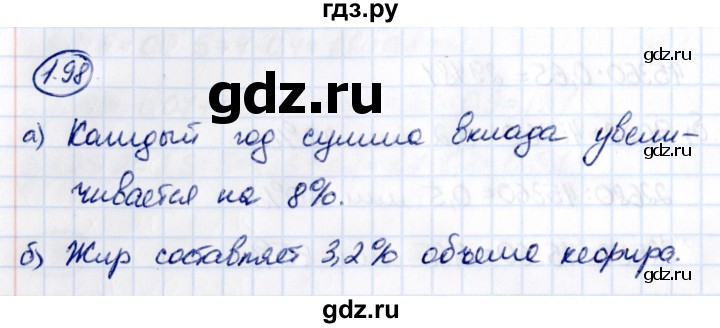 гдз.ру
1.98
а) Каждый год сумма вклада увели-
чивается на 8%.
б) Жир составляет 3,2% объема кефира.
gdz.ru
gdz.ru
gdz.ru
gdz.ru
gdz.ru